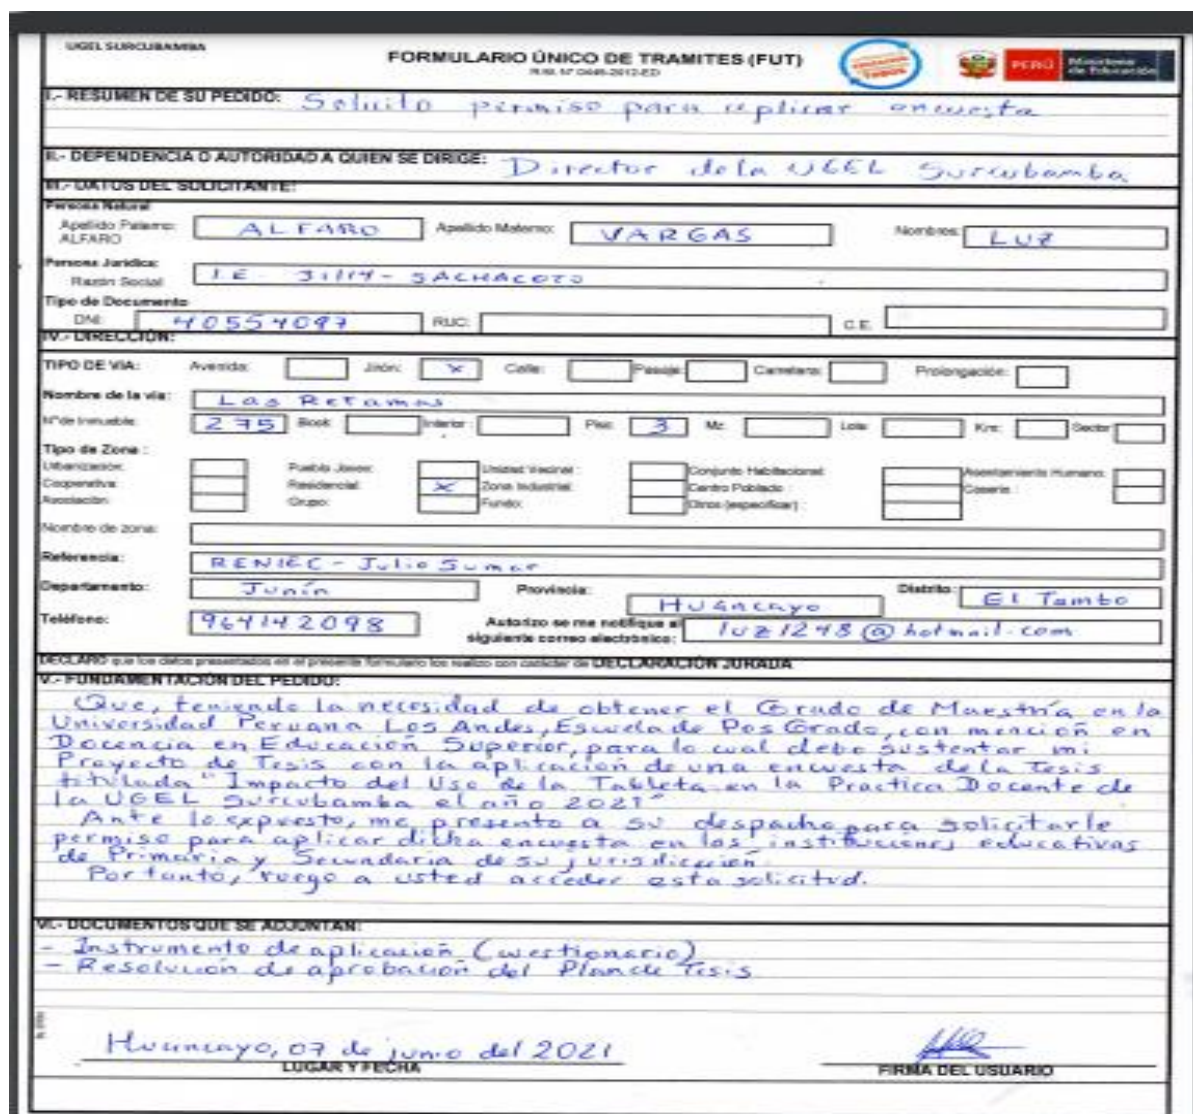 UGEL SURCUBAMBA
FORMULARIO ÚNICO DE TRAMITES (FUT)
R.M. N° 0445-2012-ED
PERÚ Ministerio de Educación
I.- RESUMEN DE SU PEDIDO: Solicito permiso para aplicar encuesta
II.- DEPENDENCIA O AUTORIDAD A QUIEN SE DIRIGE: Director de la UGEL Surcubamba
III.- DATOS DEL SOLICITANTE:
Persona Natural
Apellido Paterno: ALFARO Apellido Materno: VARGAS Nombres: LUZ
ALFARO
Persona Jurídica:
Razón Social I E 31114 - SACHACOTO
Tipo de Documento
DNI: 40554097 RUC: C.E.
IV.- DIRECCIÓN:
TIPO DE VIA: Avenida: Jirón: X Calle: Pasaje: Carretera: Prolongación:
Nombre de la via: Las Retamas
N° de Inmueble: 275 Block: Interior: Piso: 3 Mz: Lote: Km: Sector
Tipo de Zona :
Urbanización: Pueblo Joven: Unidad Vecinal : Conjunto Habitacional: Asentamiento Humano:
Cooperativa: Residencial: X Zona Industrial: Centro Poblado : Caserío :
Asociación: Grupo: Fundo: Otros (especificar) :
Nombre de zona:
Referencia: RENIEC - Julio Sumar
Departamento: Junín Provincia: Huancayo Distrito: El Tambo
Teléfono: 964142098 Autorizo se me notifique al
siguiente correo electrónico: luz1248@hotmail.com
DECLARO que los datos presentados en el presente formulario los realizo con carácter de DECLARACIÓN JURADA
V.- FUNDAMENTACIÓN DEL PEDIDO:
Que, teniendo la necesidad de obtener el Grado de Maestría en la
Universidad Peruana Los Andes, Escuela de Pos Grado, con mención en
Docencia en Educación Superior, para lo cual debo sustentar mi
Proyecto de Tesis con la aplicación de una encuesta de la Tesis
titulada "Impacto del Uso de la Tableta en la Practica Docente de
la UGEL Surcubamba el año 2021"
Ante lo expuesto, me presento a su despacho para solicitarle
permiso para aplicar dicha encuesta en las instituciones educativas
de Primaria y Secundaria de su jurisdicción.
Por tanto, ruego a usted acceder esta solicitud.
VI.- DOCUMENTOS QUE SE ADJUNTAN:
- Instrumento de aplicación (cuestionario)
- Resolución de aprobación del Plan de Tesis
Huancayo, 07 de junio del 2021
LUGAR Y FECHA FIRMA DEL USUARIO